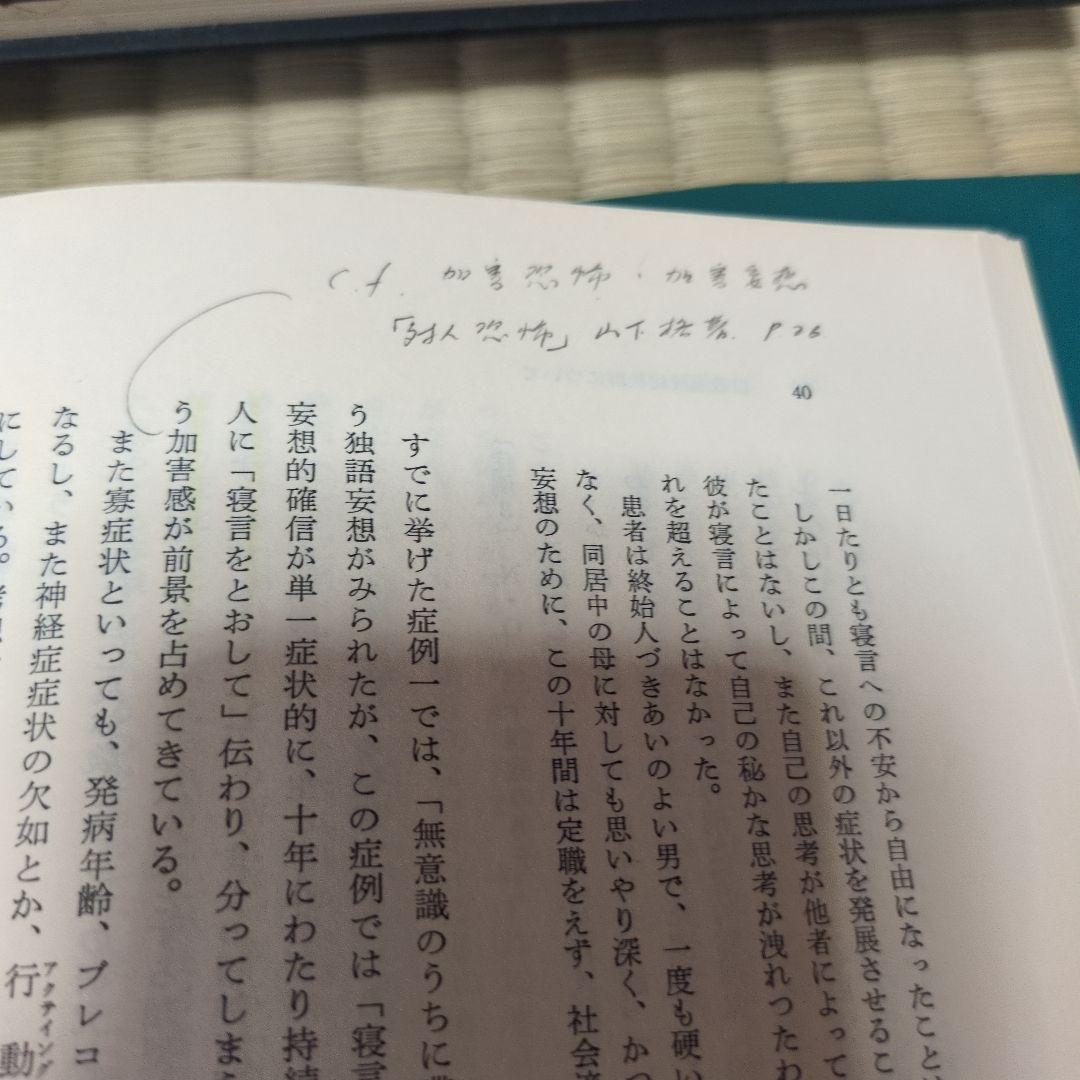 c.f. 加害恐怖・加害妄想
「対人恐怖」山下格著. P.26
40
一日たりとも寝言への不安から自由になったこと
しかしこの間、これ以外の症状を発展させるこ
たことはないし、また自己の思考が他者によって
彼が寝言によって自己の秘かな思考が洩れつたわ
れを超えることはなかった。
患者は終始人づきあいのよい男で、一度も硬い
なく、同居中の母に対しても思いやり深く、かつ
妄想のために、この十年間は定職をえず、社会
すでに挙げた症例一では、「無意識のうちに
う独語妄想がみられたが、この症例では「寝言
妄想的確信が単一症状的に、十年にわたり持続
人に「寝言をとおして」伝わり、分ってしま
う加害感が前景を占めてきている。
また寡症状といっても、発病年齢、プレコ
なるし、また神経症症状の欠如とか、行動
アクティング
にしている。